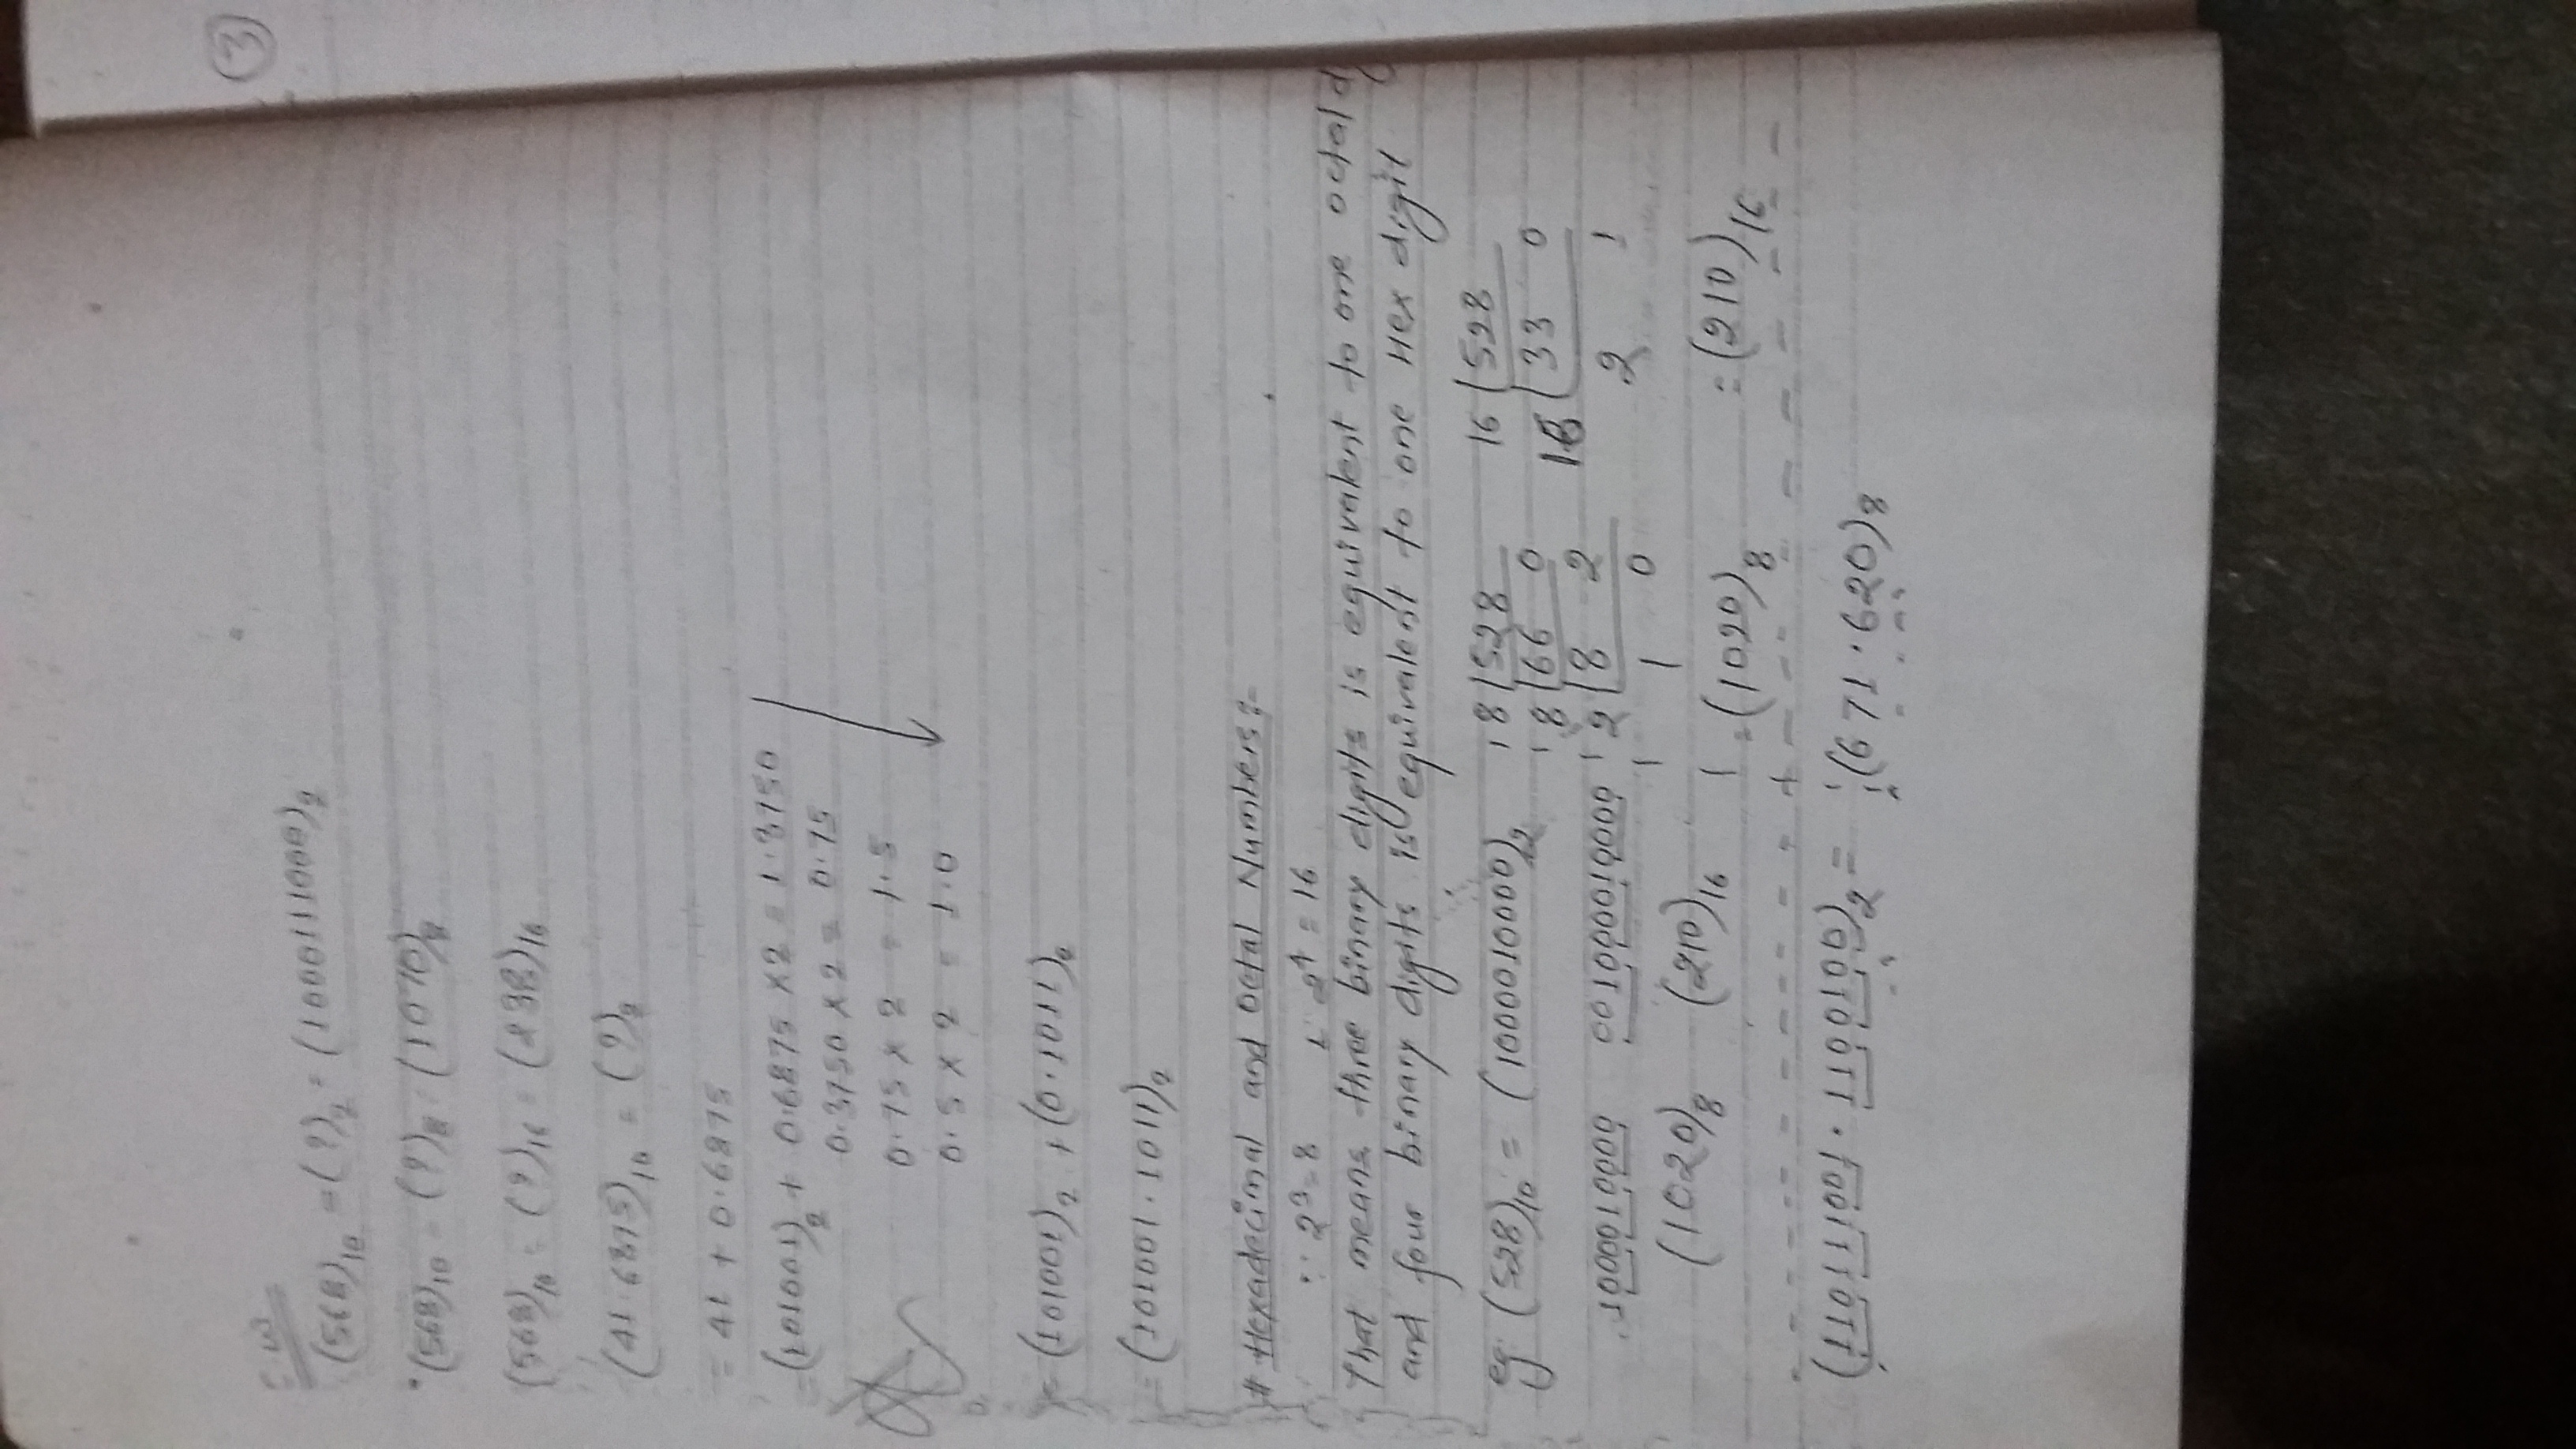 C.W
(568)10 = (?)2 = (1000111000)2
(568)10 = (?)8 = (1070)8
(568)10 = (?)16 = (238)16
(41.6875)10 = (?)2
= 41 + 0.6875
= (101001)2 + 0.6875 × 2 = 1.3750
0.3750 × 2 = 0.75
0.75 × 2 = 1.5
0.5 × 2 = 1.0
= (101001)2 + (0.1011)2
= (101001.1011)2
# Hexadecimal and Octal Numbers:-
∵ 2³ = 8 & 2⁴ = 16
That means three binary digits is equivalent to one octal d
and four binary digits is equivalent to one Hex digit
eg: (528)10 = (1000010000)2 8 528 16 528
8 66 0 16 33 0
1000010000 001000010000 2 8 2 2 1
1 0
(1020)8 (210)16 = (1020)8 = (210)16
(110111001.1100100)2 = (671.620)8
3